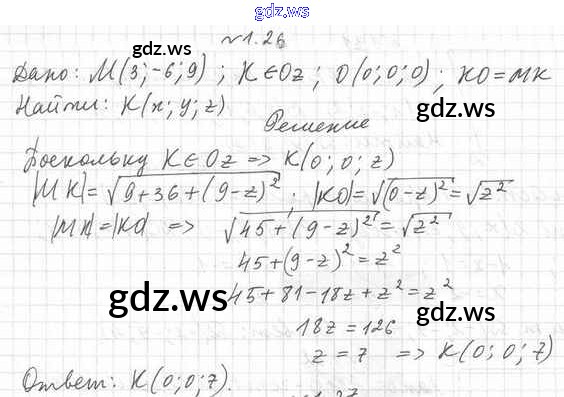 gdz.ws
№1.26
gdz.ws
Дано: M(3;-6;9); K∈Oz; O(0;0;0); KO=MK
Найти: K(x;y;z)
gdz.ws
Решение
Поскольку K∈Oz => K(0;0;z)
|MK|=√(9+36+(9-z)²); |KO|=√(0-z)²=√z²
|MK|=|KO| => √(45+(9-z)²)=√z²
45+(9-z)²=z²
gdz.ws
gdz.ws
45+81-18z+z²=z²
18z=126
z=7 => K(0;0;7)
Ответ: K(0;0;7).
№1.27